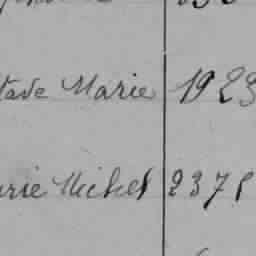 tave Marie 1923
urie Michel 2375